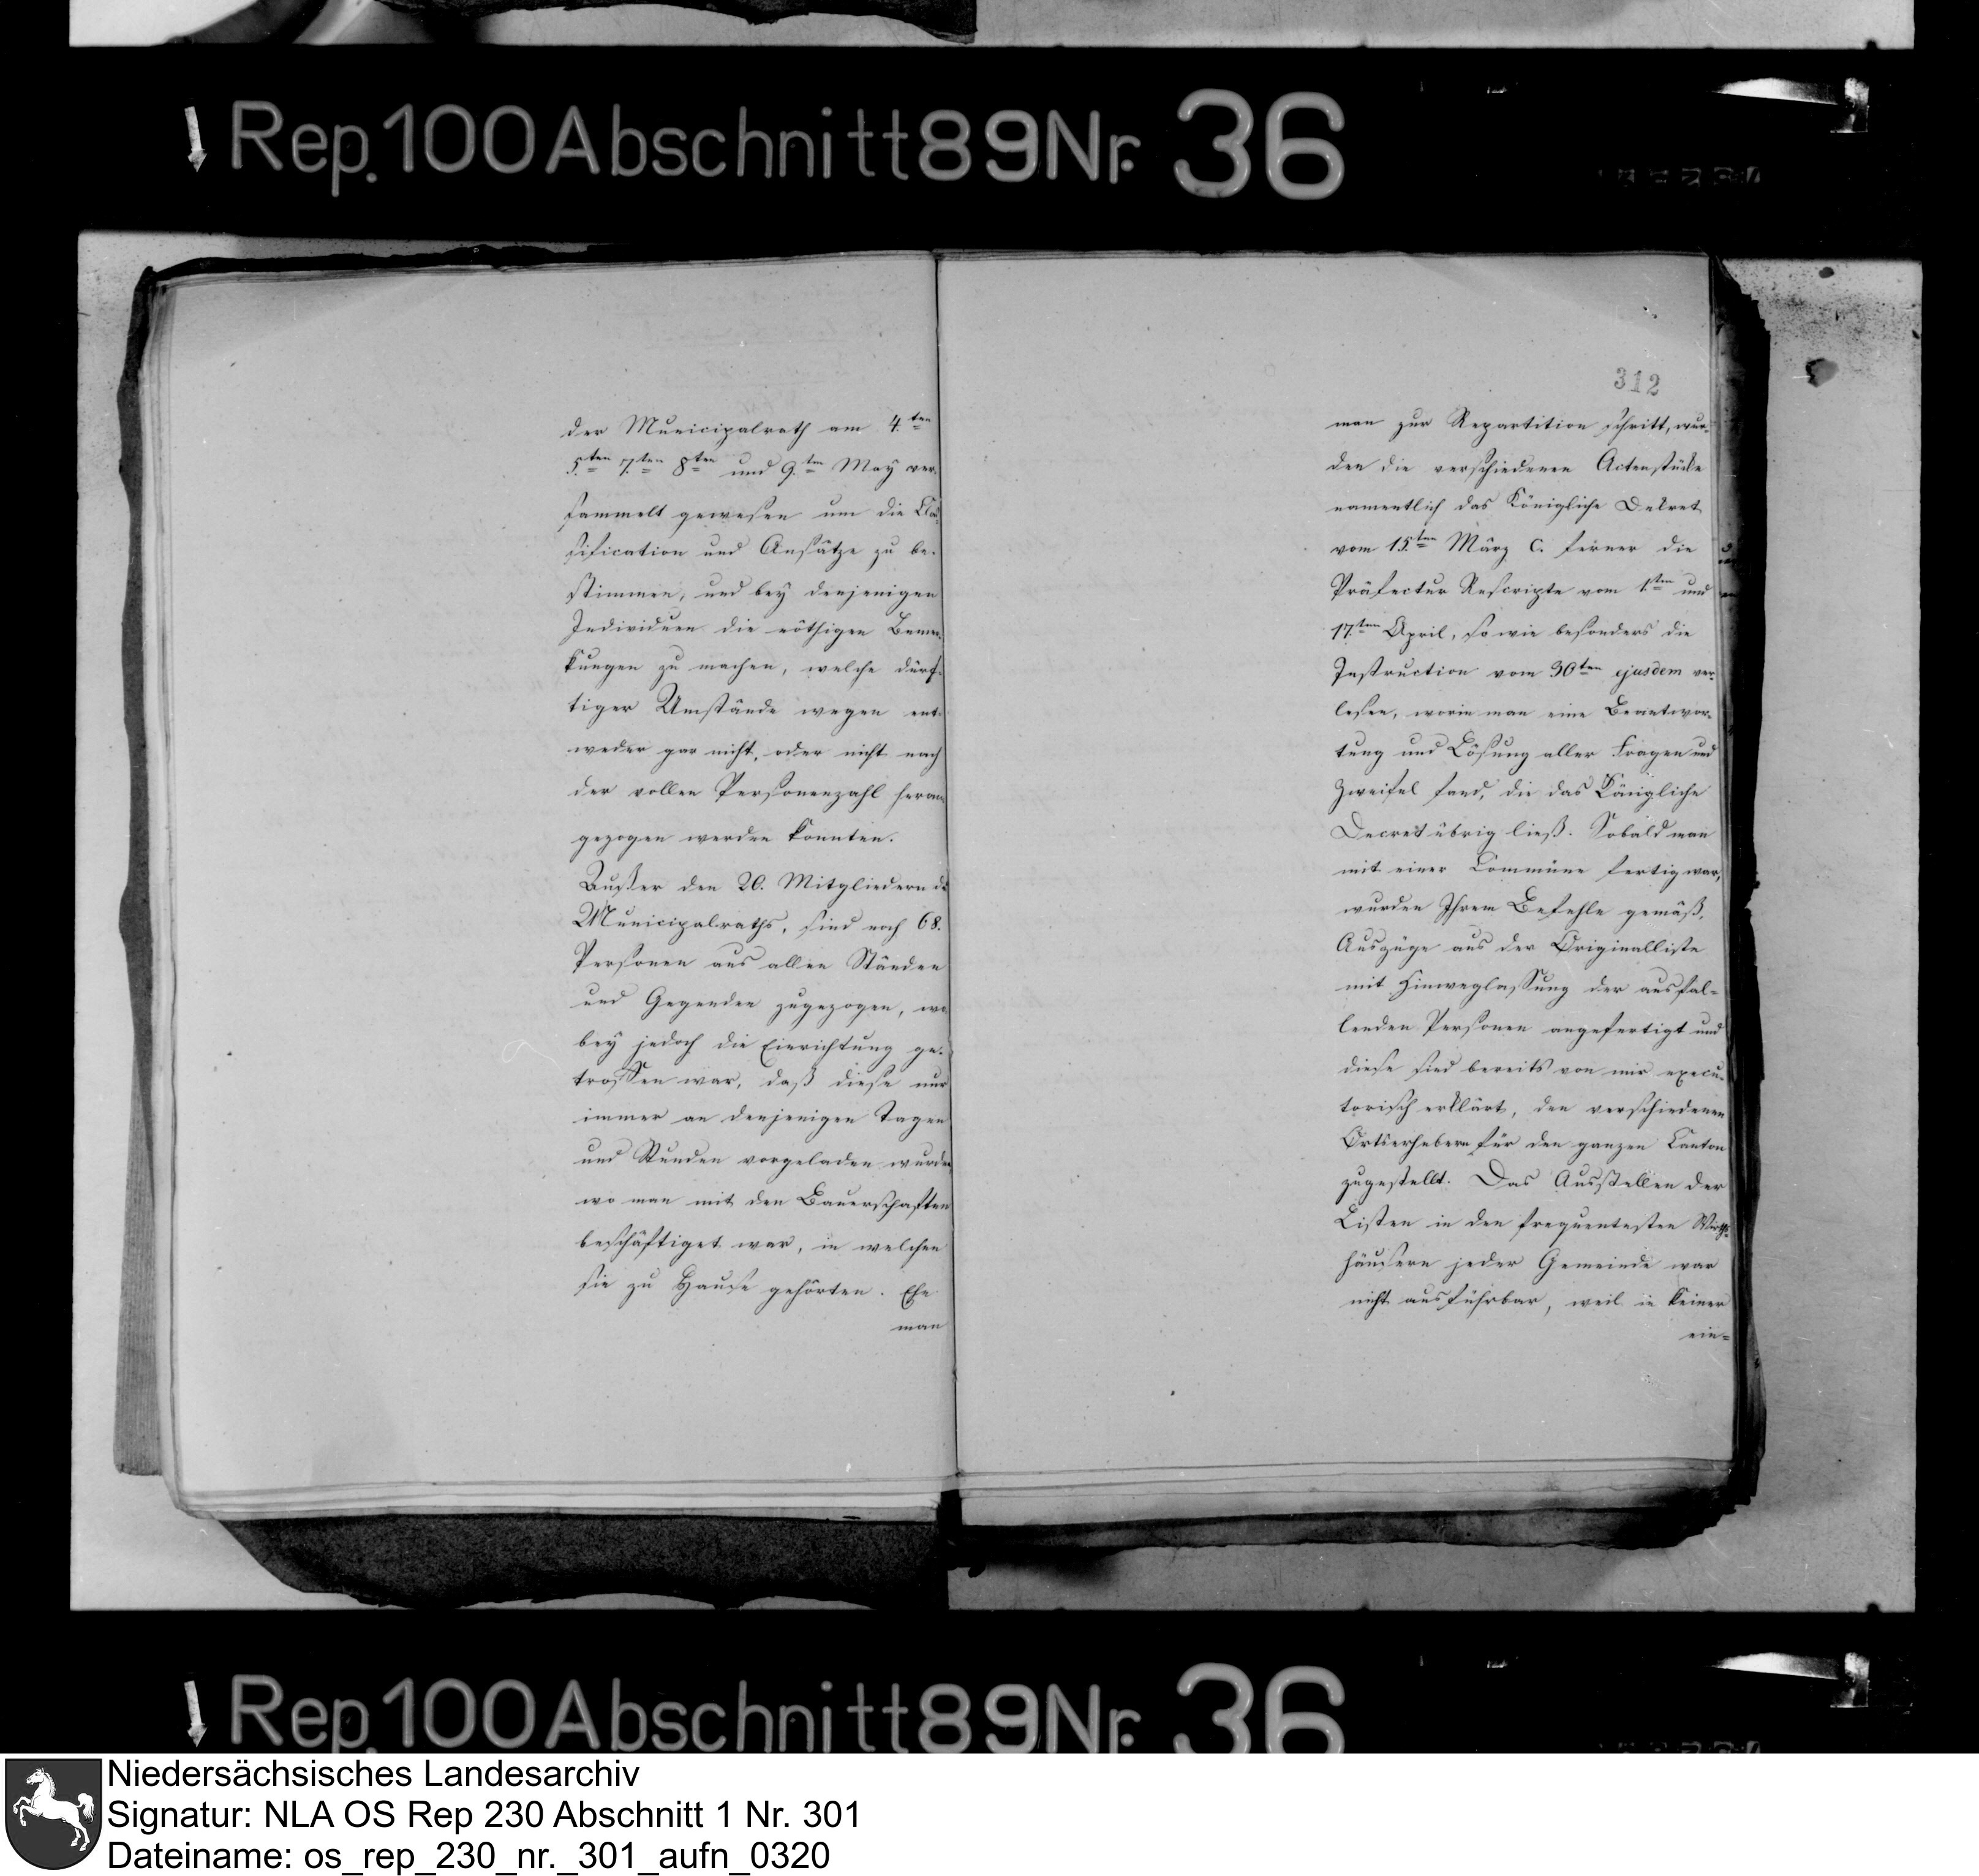 Rep. 100 Abschnitt 89 Nr. 36
der Municipalrath am 4.ten
5.ten 7.ten 8ten und 9.ten May ver-
sammelt gewesen um die Clas-
sification und Ansätze zu be-
stimmen, und bey denjenigen
Individuen die nöthigen Bemer-
kungen zu machen, welche dürf-
tiger Umstände wegen ent-
weder gar nicht, oder nicht nach
der vollen Personenzahl heran-
gezogen werden konnten.
Außer den 20. Mitgliedern des
Municipalraths, sind noch 68.
Personen aus allen Ständen
und Gegenden zugezogen, wo-
bey jedoch die Einrichtung ge-
troffen war, daß diese nur
immer an denjenigen Tagen
und Stunden vorgeladen wurden
wo man mit den Bauerschaften
beschäftiget war, in welchen
sie zu Hause gehörten. Ehe
man
312
man zur Repartition schritt, wur-
den die verschiedenen Actenstücke
namentlich das Königliche Dekret
vom 15.ten März c. ferner die
Präfectur Rescripte vom 1.ten und
17.ten April, so wie besonders die
Instruction vom 30ten ejusdem ver-
lesen, worin man eine Beantwor-
tung und Lösung aller Fragen und
Zweifel fand, die das Königliche
Decret übrig ließ. Sobald man
mit einer Commüne fertig war,
wurden Ihrem Befehle gemäß,
Auszüge aus der Originalliste
mit Hinweglassung der ausfal-
lenden Personen angefertigt und
diese sind bereits von mir execu-
torisch erklärt, den verschiedenen
Ortserhebern für den ganzen Canton
zugestellt. Das Ausstellen der
Listen in den frequentesten Wirths-
häusern jeder Gemeinde war
nicht ausführbar, weil in keiner
ein-
Rep. 100 Abschnitt 89 Nr. 36
Niedersächsisches Landesarchiv
Signatur: NLA OS Rep 230 Abschnitt 1 Nr. 301
Dateiname: os_rep_230_nr._301_aufn_0320